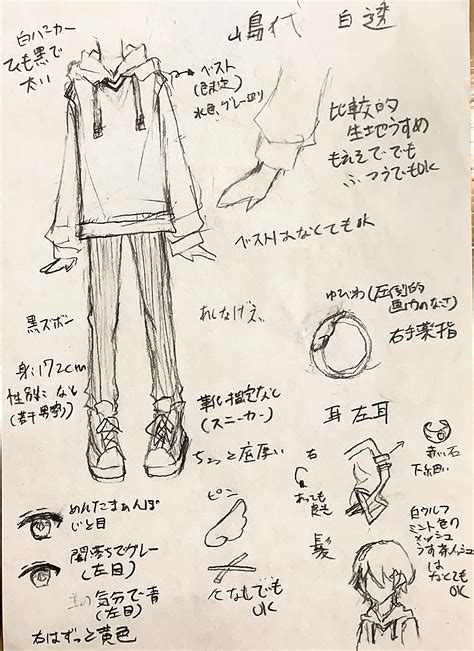 嶋代 白透
白パーカー
ひも黒で
太い
ベスト
(色未定)
水色、グレー辺り
比較的
生地うすめ
もえそでも
ふつうでもOK
ベストはなくてもOK
ゆびわ(圧倒的
画力のなさ)
右手薬指
黒ズボン
身長172cm
性別:なし
(若干男寄り)
靴指定なし
(スニーカー)
ちょっと底厚い
耳 左耳
右
あっても
良き
赤い石
下細い
ピン
髪
白ウルフ
ミント色の
メッシュ
は
なくても
OK
じと目
闇落ちでグレー
(左目)
気分で青
(左目)
右はずっと黄色
なしでも
OK